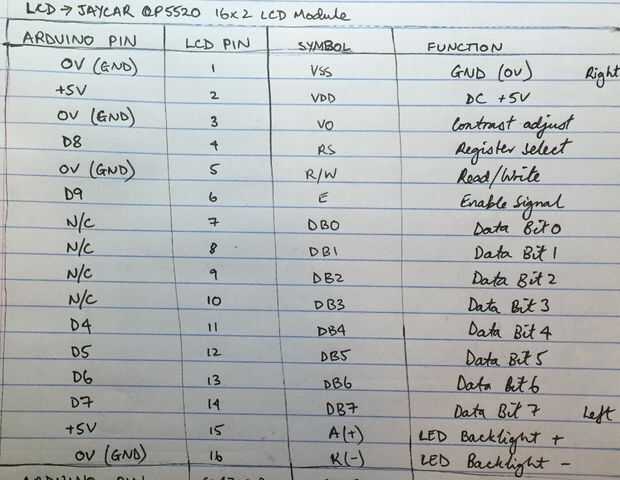 LCD → JAYCAR QP5520 16x2 LCD Module
ARDUINO PIN LCD PIN SYMBOL FUNCTION
0V (GND) 1 VSS GND (0V) Right
+5V 2 VDD DC +5V
0V (GND) 3 VO Contrast adjust
D8 4 RS Register select
0V (GND) 5 R/W Read/Write
D9 6 E Enable Signal
N/C 7 DB0 Data Bit 0
N/C 8 DB1 Data Bit 1
N/C 9 DB2 Data Bit 2
N/C 10 DB3 Data Bit 3
D4 11 DB4 Data Bit 4
D5 12 DB5 Data Bit 5
D6 13 DB6 Data Bit 6
D7 14 DB7 Data Bit 7 Left
+5V 15 A(+) LED Backlight +
0V (GND) 16 K(-) LED Backlight -